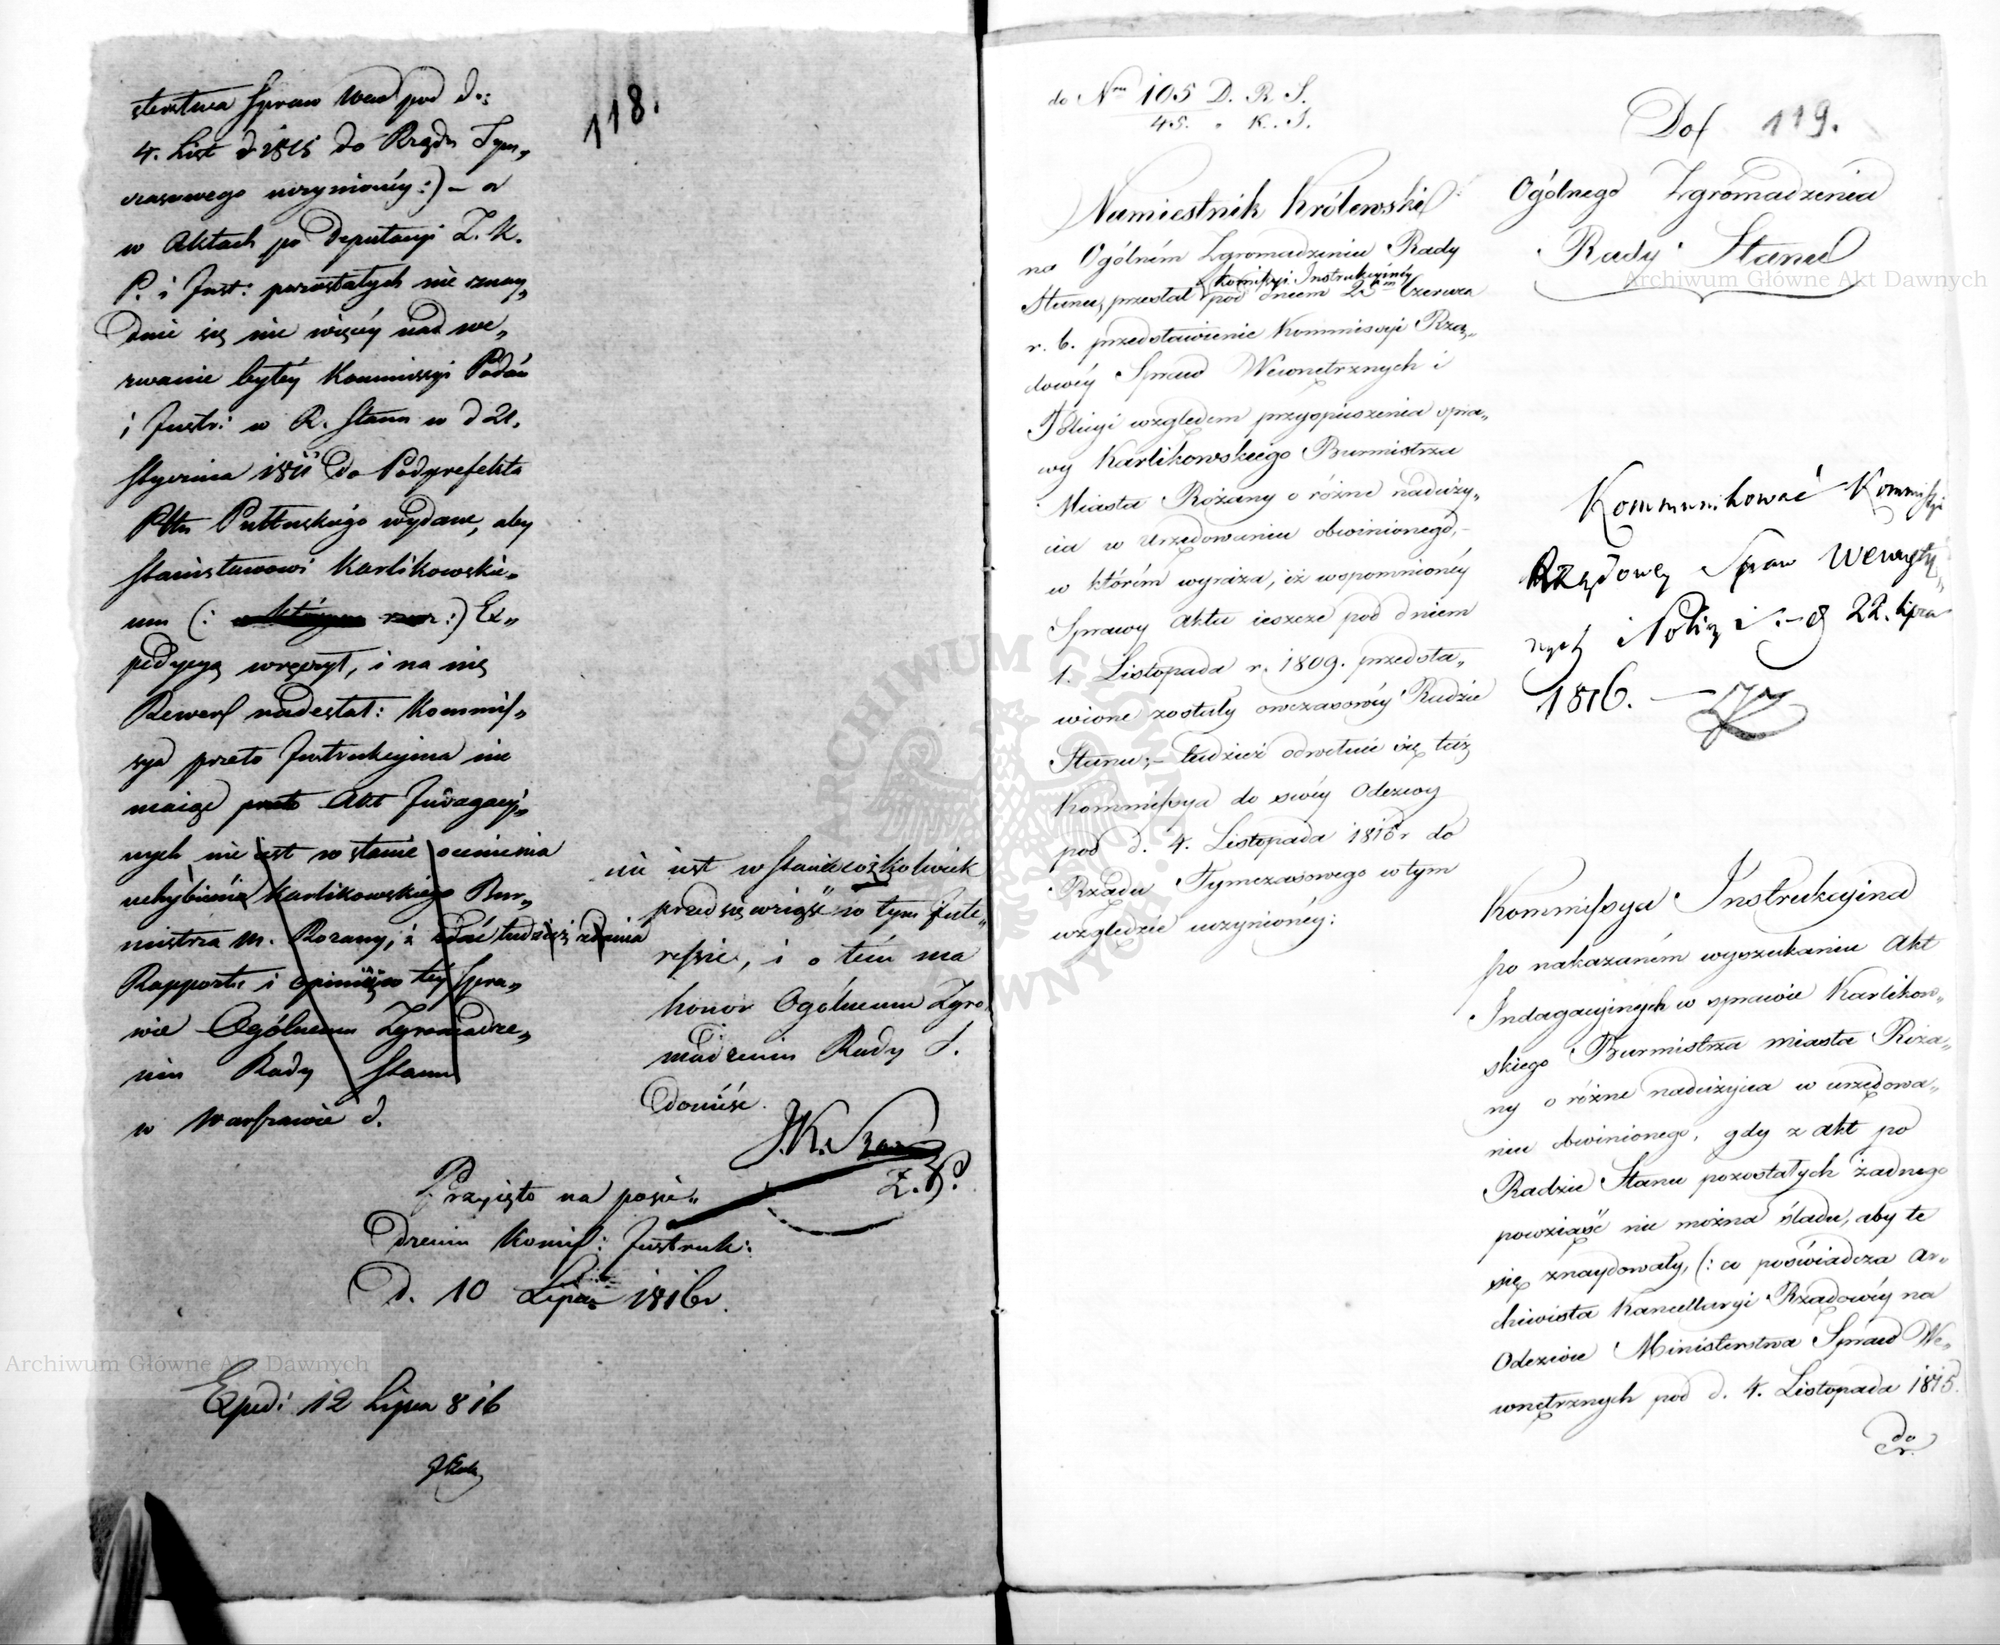 118.
sterstwa Spraw Wew pod d:
4. List d 1815 do Rządu Tym„
czasowego uczynionéy:) – a
w Aktach po Deputacyi Z. K.
P. i Instr: pozostałych nie znay„
duie się nic więcéy nad we„
zwanie byłéy Kommissyi Podań
i Instr: w R. Stanu w d 21.
Stycznia 1811 do Podprefekta
Pttu Pułtuskiego wydane, aby
Stanisławowi Karlikowskie„
mu (: :) Ex„
pedycyą wręczył, i na nię
Rewers nadesłał: Kommis„
sya przeto Instrukcyina nie
maiąc Akt Indagacyi„
nych nie iest w stanie ocenienia
uchybienia Karlikowskiego Bur„
mistrza M. Rozany, i tudzież zdania
Rapportu i opinii w téy Spra„
wie Ogólnemu Zgromadze„
niu Rady Stanu
w Warszawie d.
nie iest w stanie cożkolwiek
przedsięwziąść w tym Inte„
ressie, i o tém ma
honor Ogólnemu Zgro„
madzeniu Rady S.
donieść.
J. K. Szan
Z. P.
Przyięto na posie„
dzeniu Komis: Instruk:
D. 10 Lipca 1816 r.
Exped: 12 Lipca 816
do Nru 105 D. R. S.
45. " K. I.
119.
Do
Ogólnego Zgromadzenia
Rady Stanu
Namiestnik Królewski
na Ogólném Zgromadzeniu Rady
Kommissyi Instrukcyinéy
Stanu, przesłał pod dniem 25tm Czerwca
r. b. przedstawienie Kommissyi Rzą„
dowéy Spraw Wewnętrznych i
Policyi względem przyspieszenia spra„
wy Karlikowskiego Burmistrza
Miasta Rożany o różne naduży„
cia w Urzędowaniu obwinionego, –
w którém wyraża, iż wspomnionéy
Sprawy Akta ieszcze pod dniem
1. Listopada r. 1809. przedsta„
wione zostały owczasowéy Radzie
Stanu; – tudzież odwołuie się taż
Kommissya do swéy Odezwy
pod d. 4. Listopada 1815 r do
Rządu Tymczasowego w tym
względzie uczynionéy:
Kommunikować Kommissyi
Rządowey Spraw Wewnętrz„
nych i Policyi. – d 22. Lipca
1816. –
Kommissya Instrukcyina
po nakazaném wyszukaniu Akt
Indagacyinych w sprawie Karlikow„
skiego Burmistrza miasta Roża„
ny o różne nadużycia w urzędowa„
niu obwinionego, gdy z Akt po
Radzie Stanu pozostałych żadnego
powziąść nie można śladu, aby te
się znaydowały, (: co poświadcza Ar„
chiwista Kancellaryi Rządowéy na
Odezwie Ministerstwa Spraw We„
wnętrznych pod d. 4. Listopada 1815.
do
Archiwum Główne Akt Dawnych
Archiwum Główne Akt Dawnych
ARCHIWUM GŁÓWNE AKT DAWNYCH